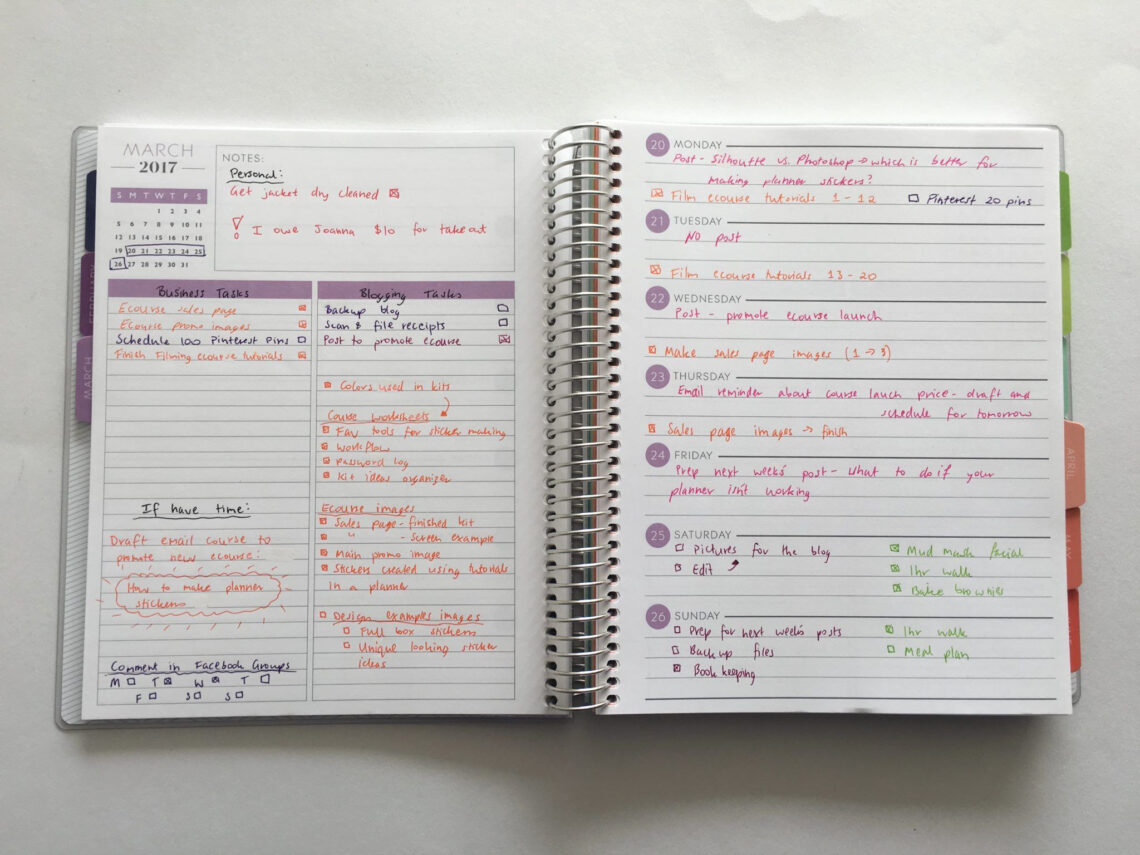 MARCH
2017
S M T W T F S
1 2 3 4
5 6 7 8 9 10 11
12 13 14 15 16 17 18
19 20 21 22 23 24 25
26 27 28 29 30 31
NOTES:
Personal:
Get jacket dry cleaned
! I owe Joanna $10 for take out
FEBRUARY
MARCH
Business Tasks
Ecourse sales page
Ecourse promo images
Schedule 100 Pinterest Pins
Finish Filming ecourse tutorials
If have time:
Draft email course to
promote new ecourse:
How to make planner
stickers
Comment in Facebook Groups
M T W T
F S S
Blogging Tasks
Backup blog
Scan & file receipts
Post to promote ecourse
Colors used in kits
Course worksheets
Fav tools for sticker making
Workflow
Password log
Kit ideas organizer
Ecourse images
Sales page - finished kit
" - Screen example
Main promo image
Stickers created using tutorials
in a planner
Design examples images
Full box stickers
Unique looking sticker
ideas
20 MONDAY
Post - Silhoutte vs. Photoshop → which is better for
making planner stickers?
Film ecourse tutorials 1 - 12 Pinterest 20 pins
21 TUESDAY
No post
Film ecourse tutorials 13 - 20
22 WEDNESDAY
Post - promote ecourse launch
Make sales page images (1 → 3)
23 THURSDAY
Email reminder about course lauch price - draft and
schedule for tomorrow
Sales page images → finish
24 FRIDAY
Prep next week's post - what to do if your
planner isn't working
25 SATURDAY
Pictures for the blog Mud mask facial
Edit 1hr walk
Bake brownies
26 SUNDAY
Prep for next week's posts 1hr walk
Backup files Meal plan
Book keeping
APRIL
MAY